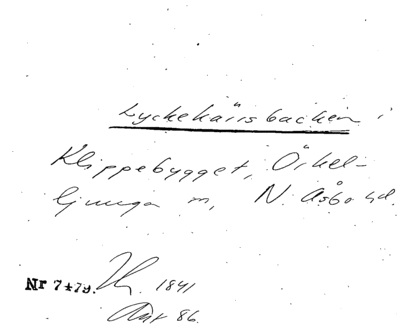 Lyckekärrsbacken i
Klippebygget, Örkel-
ljunga sn, N. Åsbo hd.
Nr 7479. 1841
86.